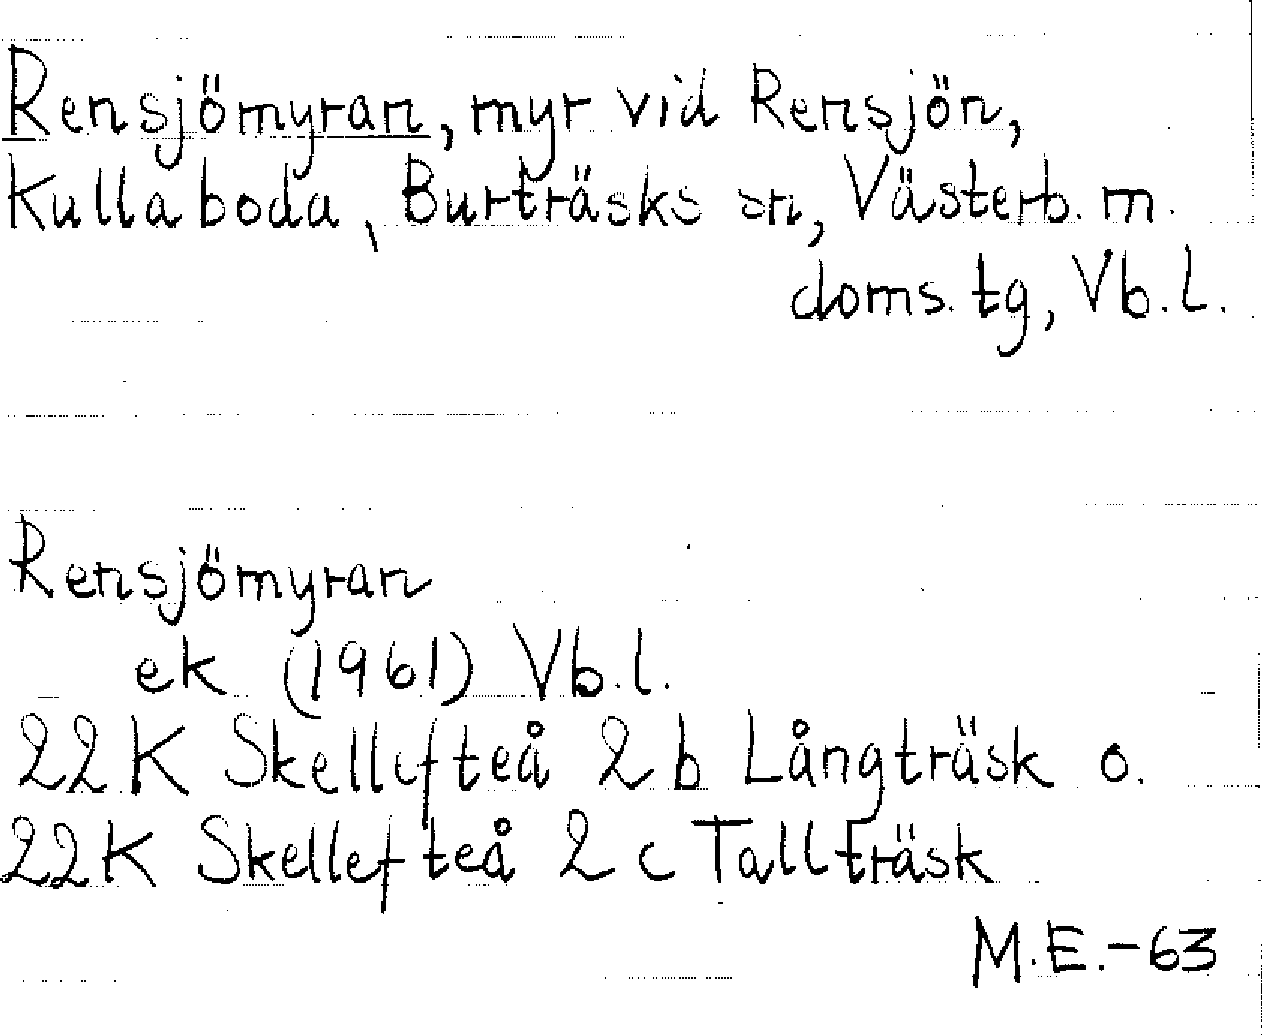 Rensjömyran, myr vid Rensjön,
Kullaboda, Burträsks sn, Västerb. m.
doms. tg, Vb. l.
Rensjömyran
ek (1961) Vb. l.
22K Skellefteå 2 b Långträsk o.
22K Skellefteå 2 c Tallträsk
M.E.-63